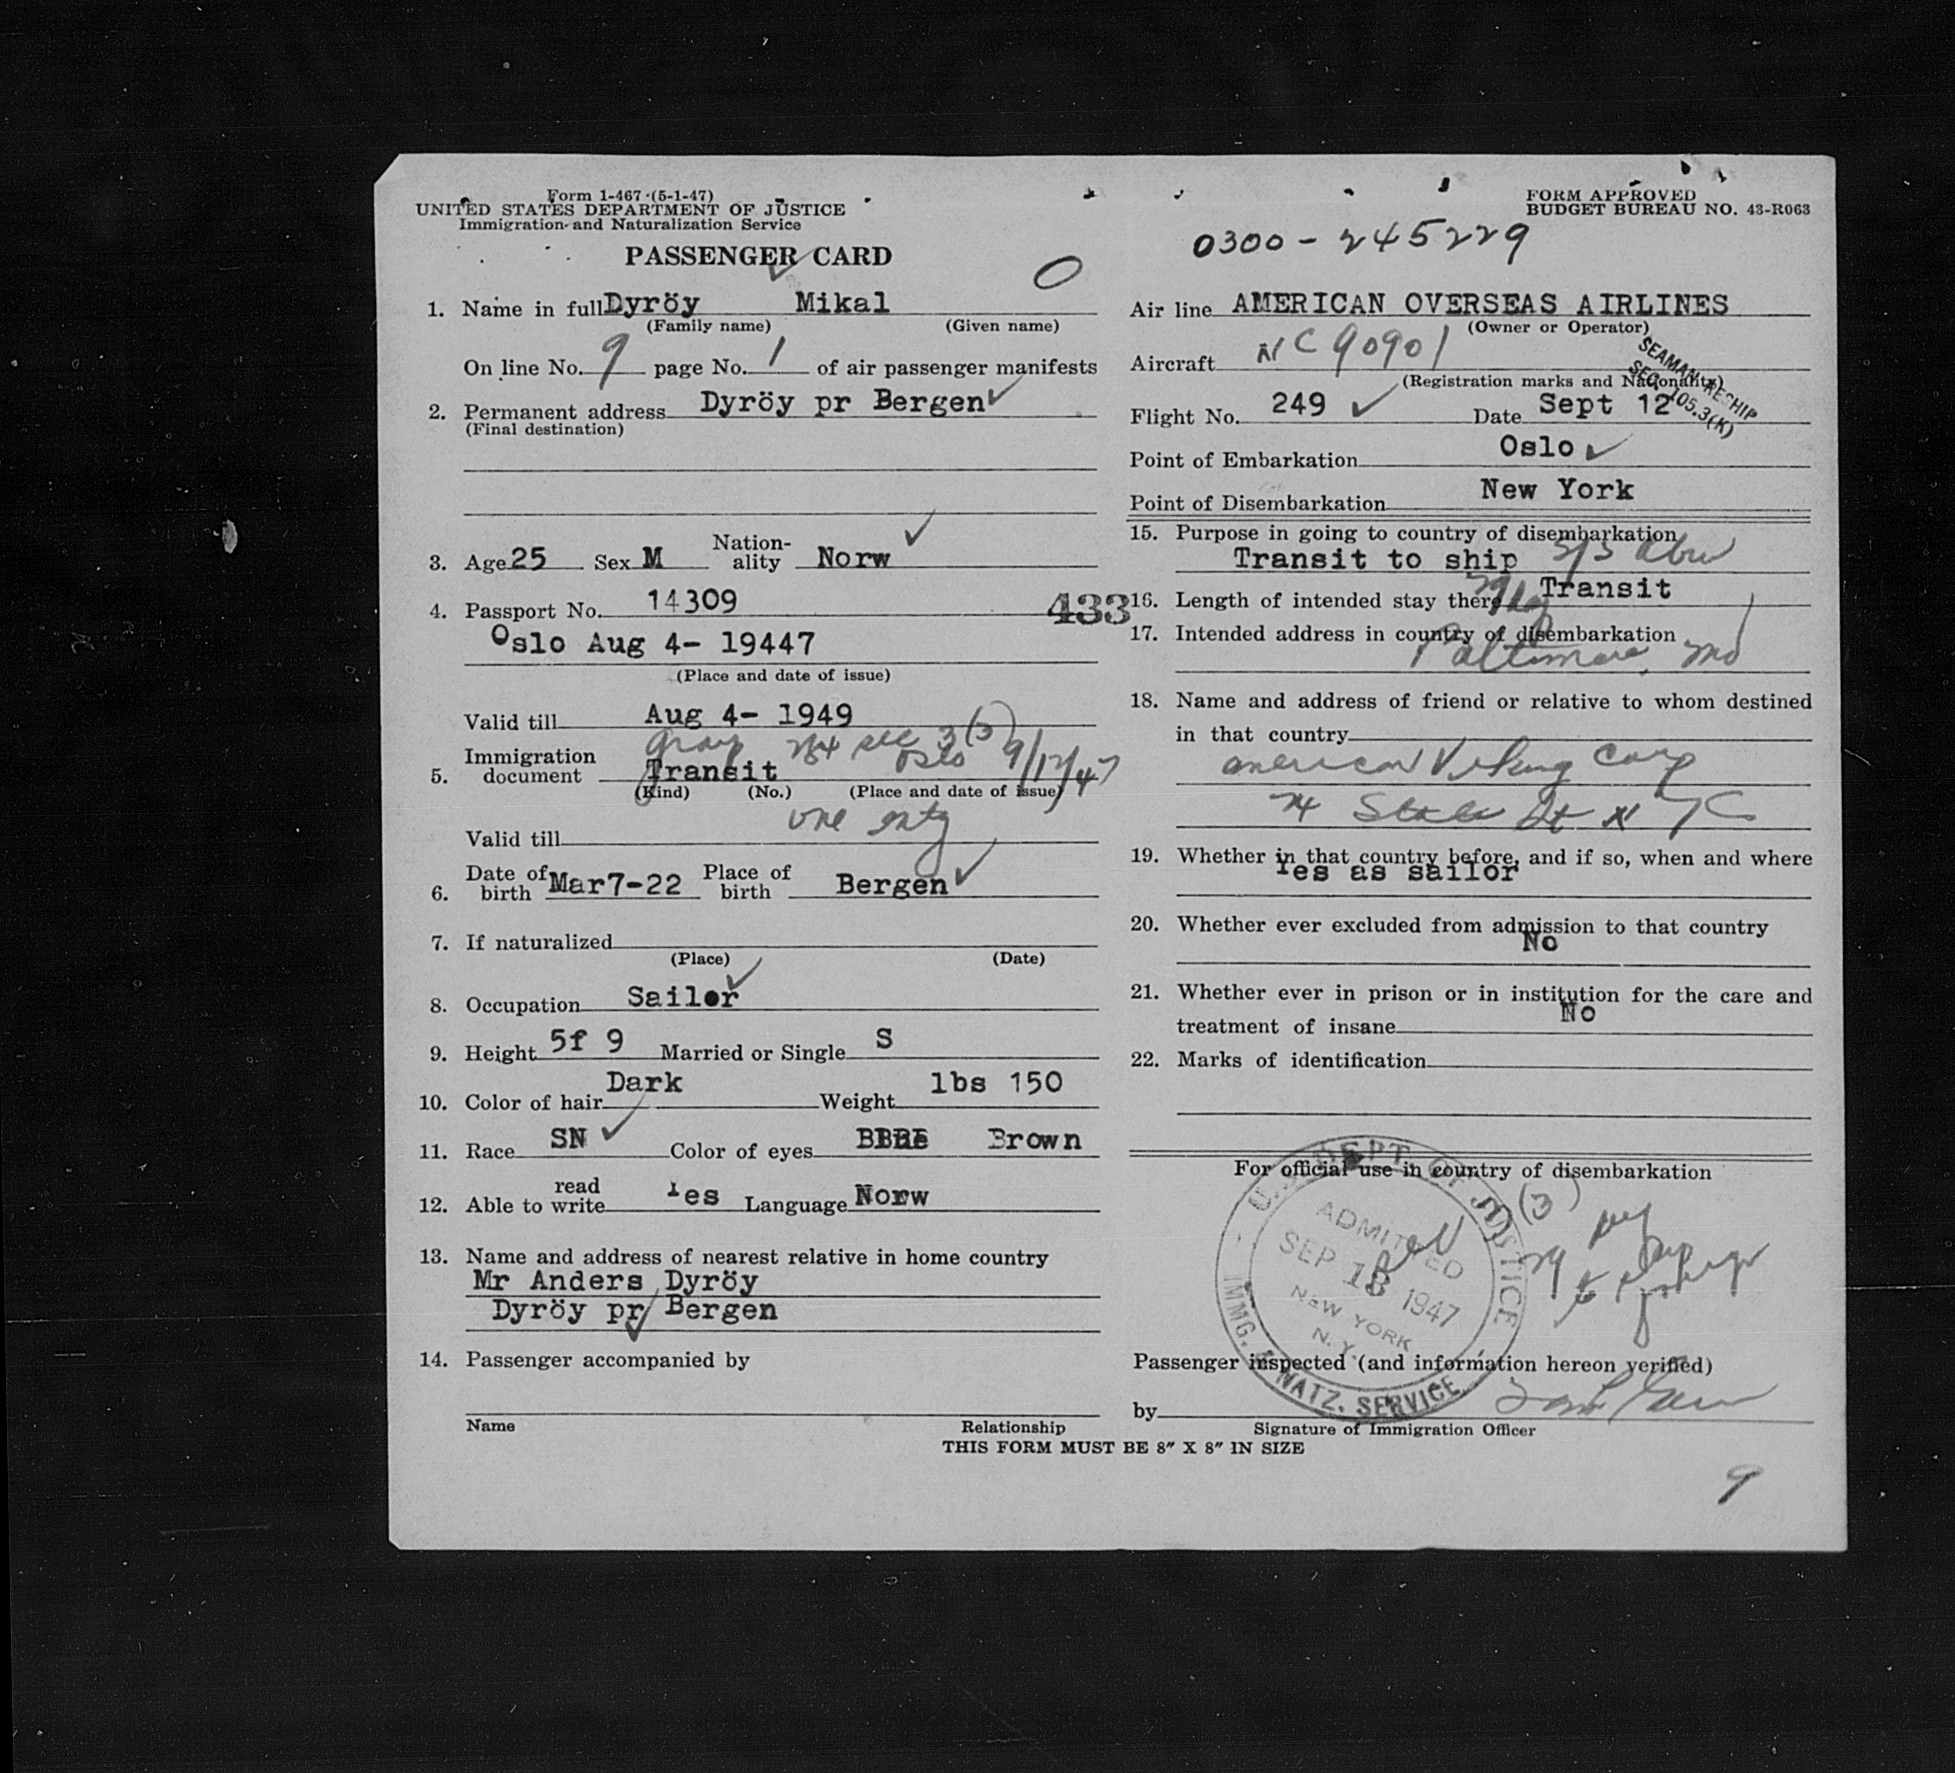 Form 1-467 (5-1-47)
UNITED STATES DEPARTMENT OF JUSTICE
Immigration and Naturalization Service
PASSENGER CARD
0
1. Name in full Dyröy Mikal
(Family name) (Given name)
On line No. 9 page No. 1 of air passenger manifests
2. Permanent address Dyröy pr Bergen
(Final destination)
3. Age 25 Sex M Nation-ality Norw
4. Passport No. 14309
433
Oslo Aug 4- 19447
(Place and date of issue)
Valid till Aug 4- 1949
sec 3(3)
5. Immigration document Transit Oslo 9/12/47
(Kind) (No.) (Place and date of issue)
Valid till one entry
6. Date of birth Mar7-22 Place of birth Bergen
7. If naturalized
(Place) (Date)
8. Occupation Sailor
9. Height 5f 9 Married or Single S
10. Color of hair Dark Weight lbs 150
11. Race SN Color of eyes Brown
12. Able to read write Yes Language Norw
13. Name and address of nearest relative in home country
Mr Anders Dyröy
Dyröy pr Bergen
14. Passenger accompanied by
Name Relationship
FORM APPROVED
BUDGET BUREAU NO. 43-R063
0300-245229
Air line AMERICAN OVERSEAS AIRLINES
(Owner or Operator)
Aircraft NC90901
(Registration marks and Nationality)
SEAMAN RESHIP
SEC. 105.3(K)
Flight No. 249 Date Sept 12
Point of Embarkation Oslo
Point of Disembarkation New York
15. Purpose in going to country of disembarkation
Transit to ship S/S
16. Length of intended stay there Transit
17. Intended address in country of disembarkation
Baltimore, Md
18. Name and address of friend or relative to whom destined
in that country
American Viking Corp
24 State St N Y C
19. Whether in that country before, and if so, when and where
Yes as sailor
20. Whether ever excluded from admission to that country
No
21. Whether ever in prison or in institution for the care and
treatment of insane No
22. Marks of identification
For official use in country of disembarkation
U.S. DEPT. OF JUSTICE
ADMITTED
SEP 13 1947
NEW YORK
N.Y.
IMMG. & NATZ. SERVICE
(3)
29
Passenger inspected (and information hereon verified)
by
Signature of Immigration Officer
THIS FORM MUST BE 8" X 8" IN SIZE
9